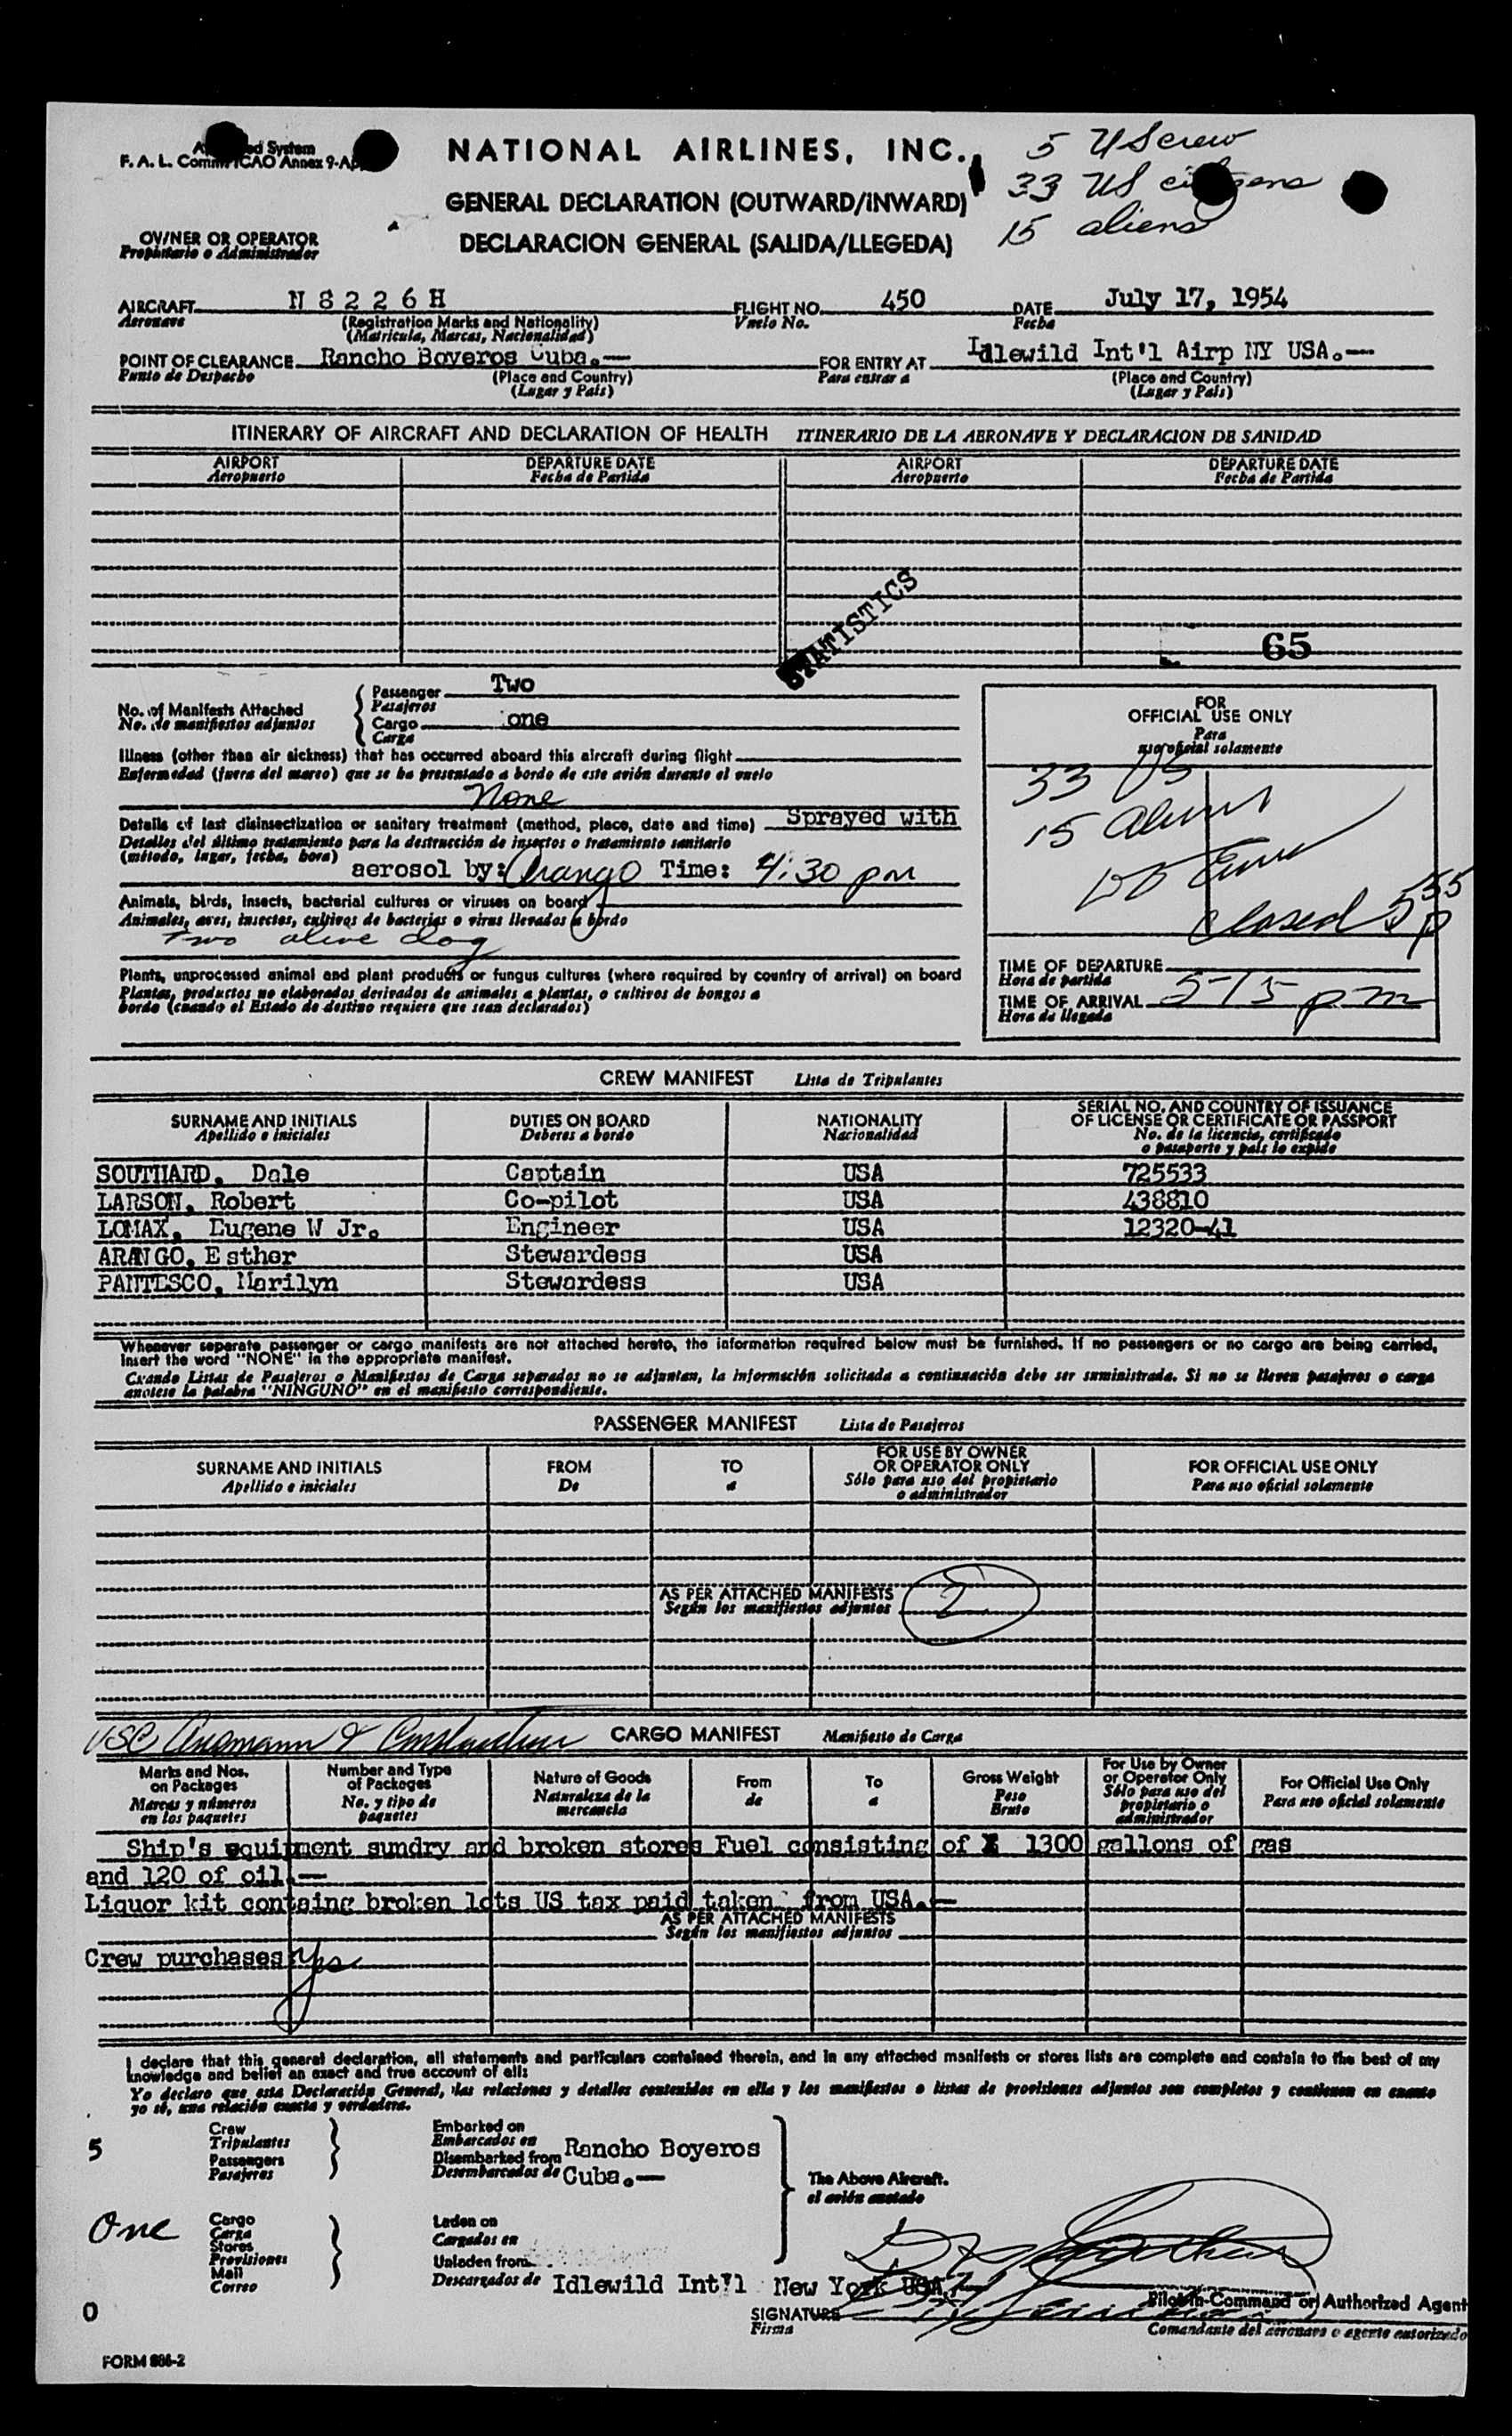 NATIONAL AIRLINES, INC.
5 US crew
F. A. L. ICAO Annex 9-
33 US citizens
GENERAL DECLARATION (OUTWARD/INWARD)
15 aliens
OWNER OR OPERATOR
Prophitario o Administrador
DECLARACION GENERAL (SALIDA/LLEGEDA)
AIRCRAFT N 8 2 2 6 H FLIGHT NO. 450 DATE July 17, 1954
Aeronave (Registration Marks and Nationality) Vuelo No. Fecha
(Matricula, Marcas, Nacionalidad)
POINT OF CLEARANCE Rancho Boyeros Cuba.— FOR ENTRY AT Idlewild Int'l Airp NY USA.—
Punto de Despacho (Place and Country) Para entrar a (Place and Country)
(Lugar y País) (Lugar y País)
ITINERARY OF AIRCRAFT AND DECLARATION OF HEALTH ITINERARIO DE LA AERONAVE Y DECLARACION DE SANIDAD
AIRPORT DEPARTURE DATE AIRPORT DEPARTURE DATE
Aeropuerto Fecha de Partida Aeropuerto Fecha de Partida
STATISTICS
65
No. of Manifests Attached Passenger Two
No. de manifiestos adjuntos Pasajeros
Cargo one
Carga
Illness (other than air sickness) that has occurred aboard this aircraft during flight
Enfermedad (fuera del mareo) que se ha presentado a bordo de este avión durante el vuelo
None
Details of last disinsectization or sanitary treatment (method, place, date and time) Sprayed with
Detalles del último tratamiento para la destrucción de insectos o tratamiento sanitario
(método, lugar, fecha, hora) aerosol by: Arango Time: 4:30 pm
Animals, birds, insects, bacterial cultures or viruses on board
Animales, aves, insectos, cultivos de bacterias o virus llevados a bordo
Two alive dog
Plants, unprocessed animal and plant products or fungus cultures (where required by country of arrival) on board
Plantas, productos no elaborados derivados de animales a plantas, o cultivos de hongos a
bordo (cuando el Estado de destino requiere que sean declarados)
FOR
OFFICIAL USE ONLY
Para
uso oficial solamente
33 US
15 aliens
Closed 5 55 p
TIME OF DEPARTURE
Hora de partida
TIME OF ARRIVAL 5 15 pm
Hora de llegada
CREW MANIFEST Lista de Tripulantes
SURNAME AND INITIALS DUTIES ON BOARD NATIONALITY SERIAL NO. AND COUNTRY OF ISSUANCE
Apellido e iniciales Deberes a bordo Nacionalidad OF LICENSE OR CERTIFICATE OR PASSPORT
No. de la licencia, certificado
o pasaporte y país lo expide
SOUTHARD, Dale Captain USA 725533
LARSON, Robert Co-pilot USA 438810
LOMAX, Eugene W Jr. Engineer USA 12320-41
ARANGO, Esther Stewardess USA
PANTESCO, Marilyn Stewardess USA
Whenever separate passenger or cargo manifests are not attached hereto, the information required below must be furnished. If no passengers or no cargo are being carried,
insert the word "NONE" in the appropriate manifest.
Cuando Listas de Pasajeros o Manifiestos de Carga separados no se adjuntan, la información solicitada a continuación debe ser suministrada. Si no se lleven pasajeros o carga
anotese la palabra "NINGUNO" en el manifiesto correspondiente.
PASSENGER MANIFEST Lista de Pasajeros
SURNAME AND INITIALS FROM TO FOR USE BY OWNER OR OPERATOR ONLY FOR OFFICIAL USE ONLY
Apellido e iniciales De a Sólo para uso del propietario o administrador Para uso oficial solamente
AS PER ATTACHED MANIFESTS 2
Según los manifiestos adjuntos
USC
CARGO MANIFEST Manifiesto de Carga
Marks and Nos. on Packages Number and Type of Packages Nature of Goods From To Gross Weight For Use by Owner or Operator Only For Official Use Only
Marcas y números en los paquetes No. y tipo de paquetes Naturaleza de la mercancia de a Peso Bruto Sólo para uso del propietario o administrador Para uso oficial solamente
Ship's equipment sundry and broken stores Fuel consisting of 1300 gallons of gas
and 120 of oil.—
Liquor kit containg broken lots US tax paid taken from USA.—
AS PER ATTACHED MANIFESTS
Según los manifiestos adjuntos
Crew purchases yes
I declare that this general declaration, all statements and particulars contained therein, and in any attached manifests or stores lists are complete and contain to the best of my
knowledge and belief an exact and true account of all:
Yo declaro que esta Declaración General, las relaciones y detalles contenidos en ella y los manifiestos o listas de provisiones adjuntos son completos y contienen en cuanto
yo sé, una relación exacta y verdadera.
5 Crew Embarked on
Tripulantes Embarcados en Rancho Boyeros
Passengers Disembarked from
Pasajeros Desembarcados de Cuba.—
The Above Aircraft.
el avión anotado
One Cargo Laden on
Carga Cargados en
Stores
Provisiones Unladen from
Mail Descargados de Idlewild Int'l New York USA
Correo
0
SIGNATURE Pilot-in-Command or Authorized Agent
Firma Comandante del aeronave o agente autorizado
FORM 886-2